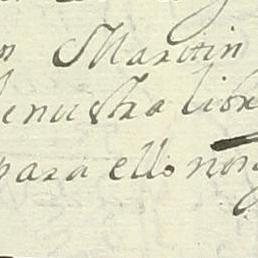 n Martin
de nuestra libre
para ello no